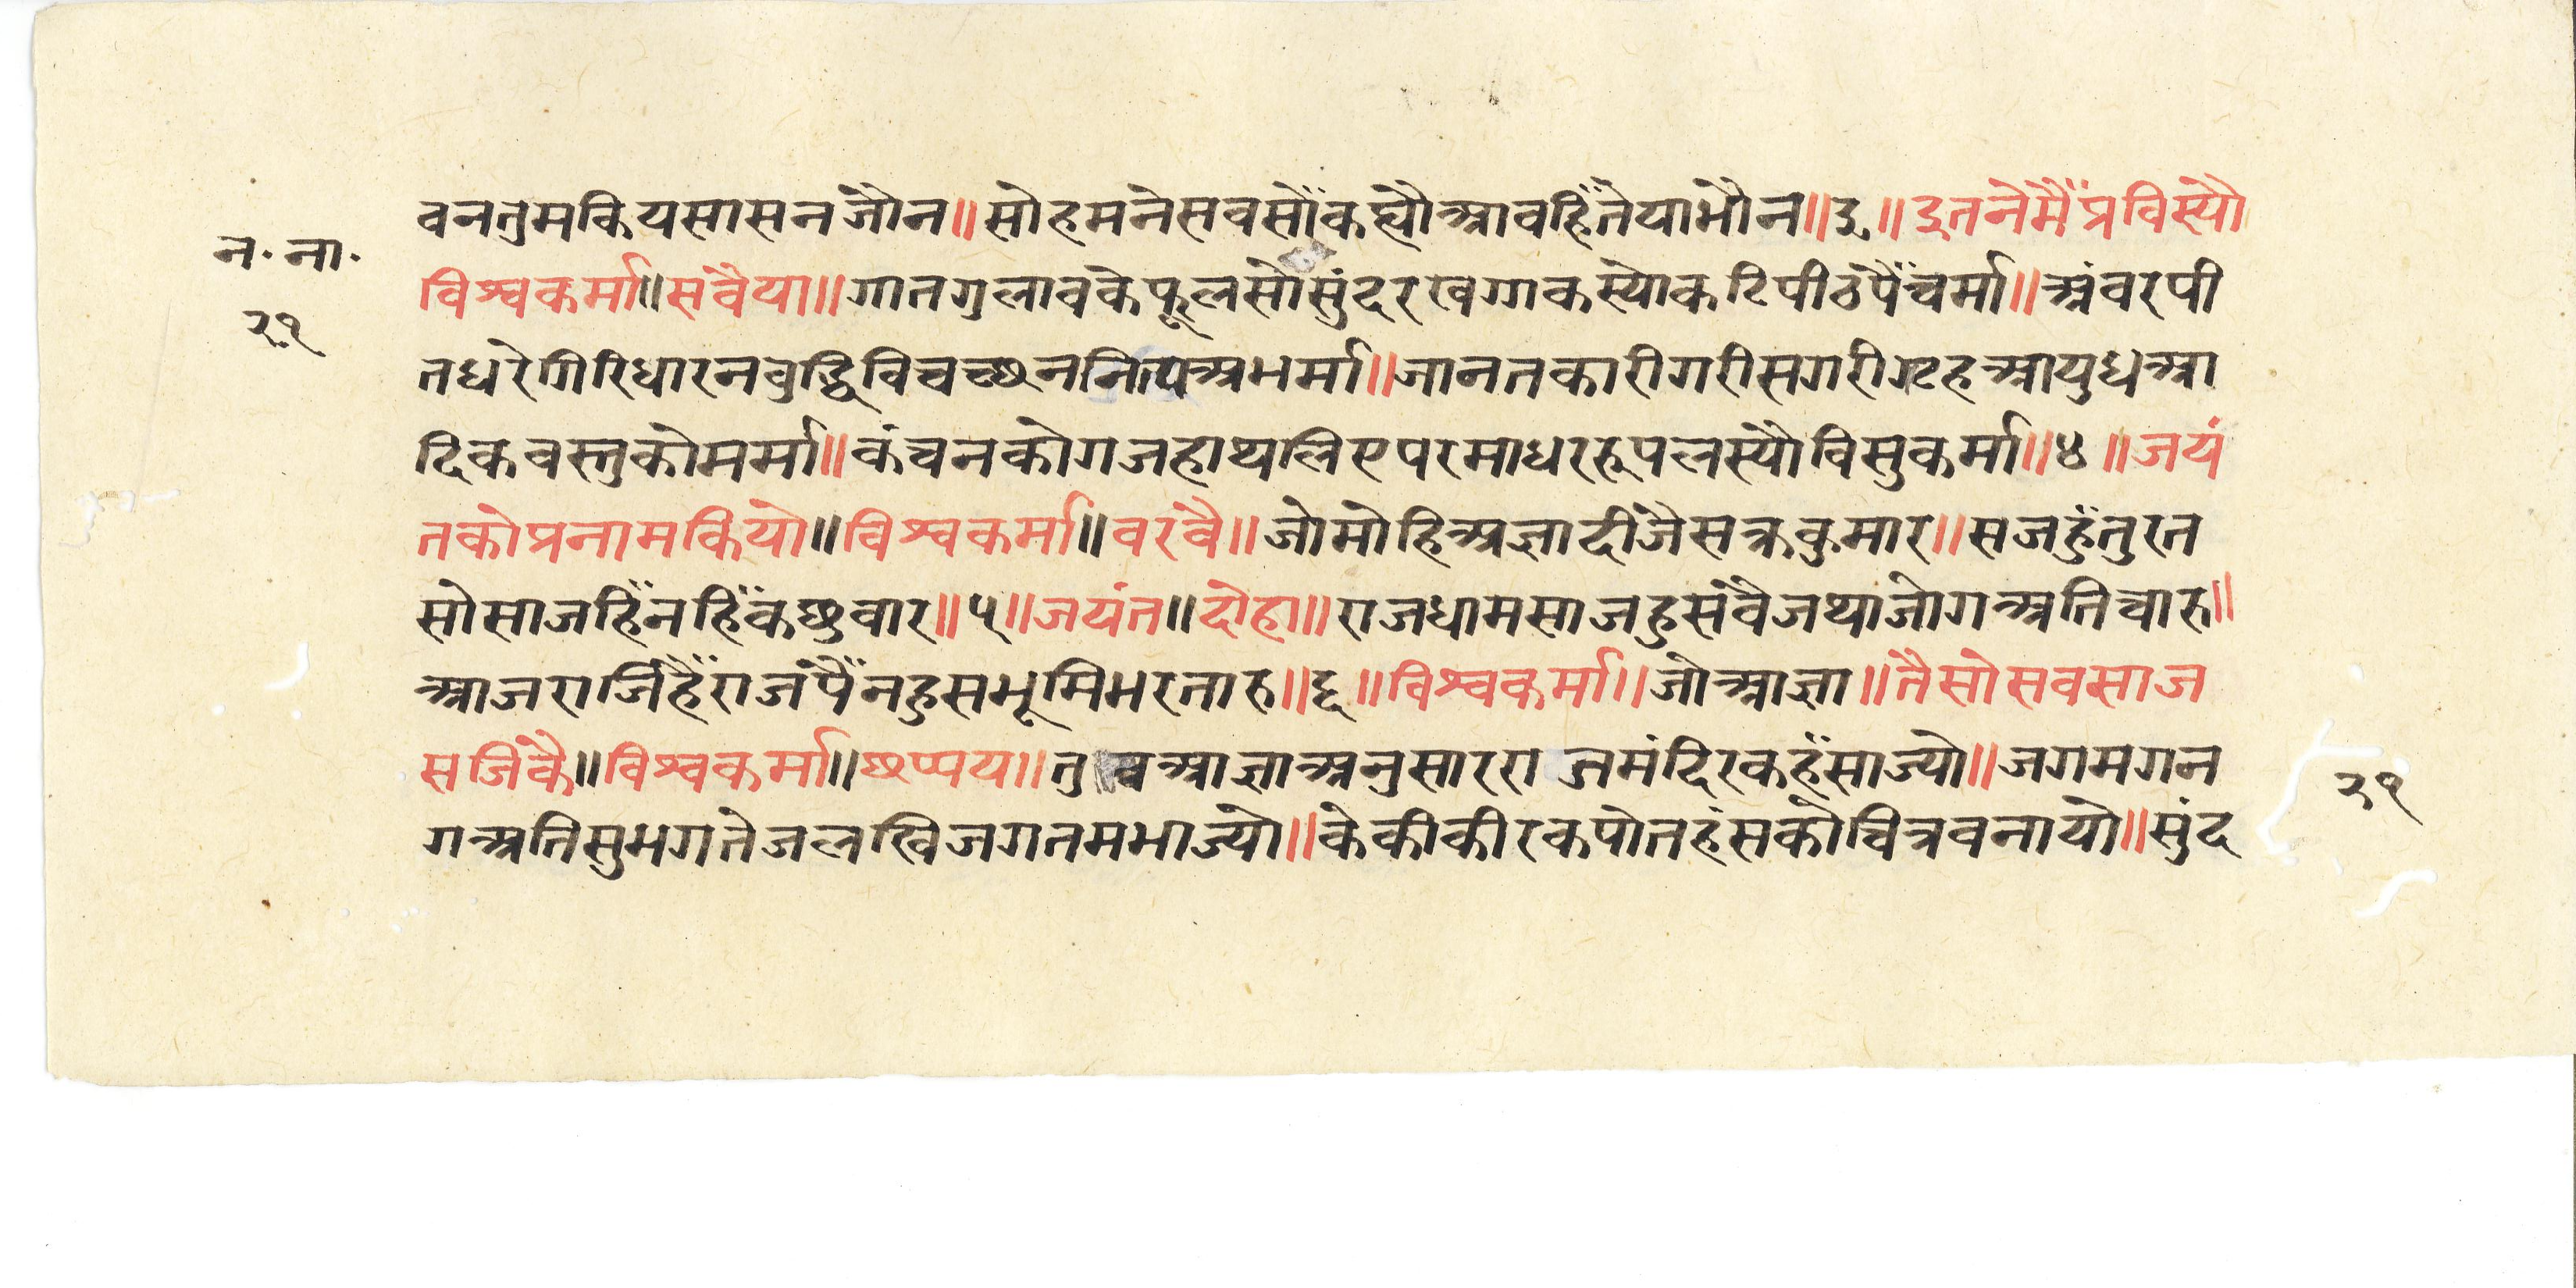 वनतुमकियसासनजौन॥सोहमनेसवसौंकह्यौआवहिंतेयाभौन॥३॥इतनेमैंप्रविस्यौ
न॰ना॰
विश्वकर्मा॥सवैया॥गातगुलावकेफूलसौसुंदरखेगाकस्योकटिपीठपैंचर्मा॥अंवरपी
२१
तधरेगिरिधारनवुद्धिविचच्छननित्यअभर्मा॥जानतकारीगरीसगरीगृहआयुधआ
दिकवस्तुकोमर्मा॥कंचनकोगजहाथलिएपरमाधररूपलस्यौविसुकर्मा॥४॥जयं
तकोप्रनामकियो॥विश्वकर्मा॥वरवै॥जोमोहिअज्ञादीजैसक्रकुमार॥सजहुंतुरत
सोसाजहिंनहिंकछुवार॥५॥जयंत॥दोहा॥राजधामसाजहुसवैजथाजोगअतिचारु॥
आजराजिहैंराजपैंनहुसभूमिभरतारु॥६॥विश्वकर्मा॥जोआज्ञा॥तैसोसवसाज
सजिकै॥विश्वकर्मा॥छप्पय॥तुवआज्ञाअनुसारराजमंदिरकहंसाज्यो॥जगमगन
२१
गअतिसुभगतेजलखिजगतमभाज्यो॥केकीकीरकपोतहंसकोचित्रवनायो॥सुंद